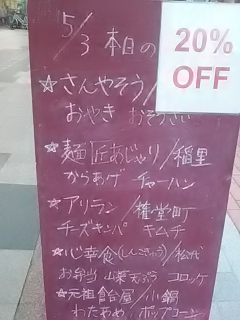 5/3 本日の
20%
OFF
☆さんやそう/
おやき おそうざい
☆麺匠あじゃり/稲里
からあげ チャーハン
☆アリラン/権堂町
チーズキンパ キムチ
☆心幸食(しんこうしょく)/松代
お弁当 山菜天ぷら コロッケ
☆元祖飴台屋/小鍋
わたあめ ポップコーン